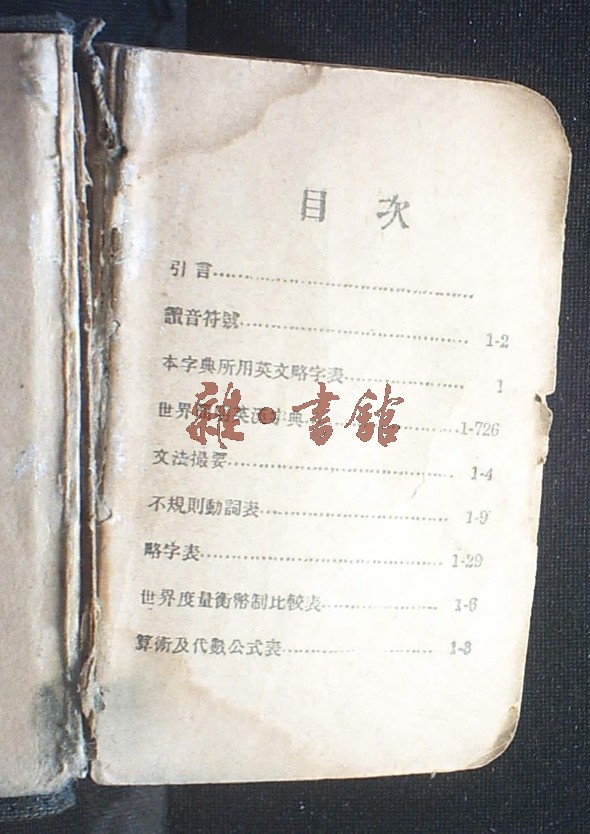 目 次
引言
讀音符號 1-2
本字典所用英文略字表 1
世界 英漢字典 1-726
雜·書館
文法撮要 1-4
不規則動詞表 1-9
略字表 1-29
世界度量衡幣制比較表 1-6
算術及代數公式表 1-3